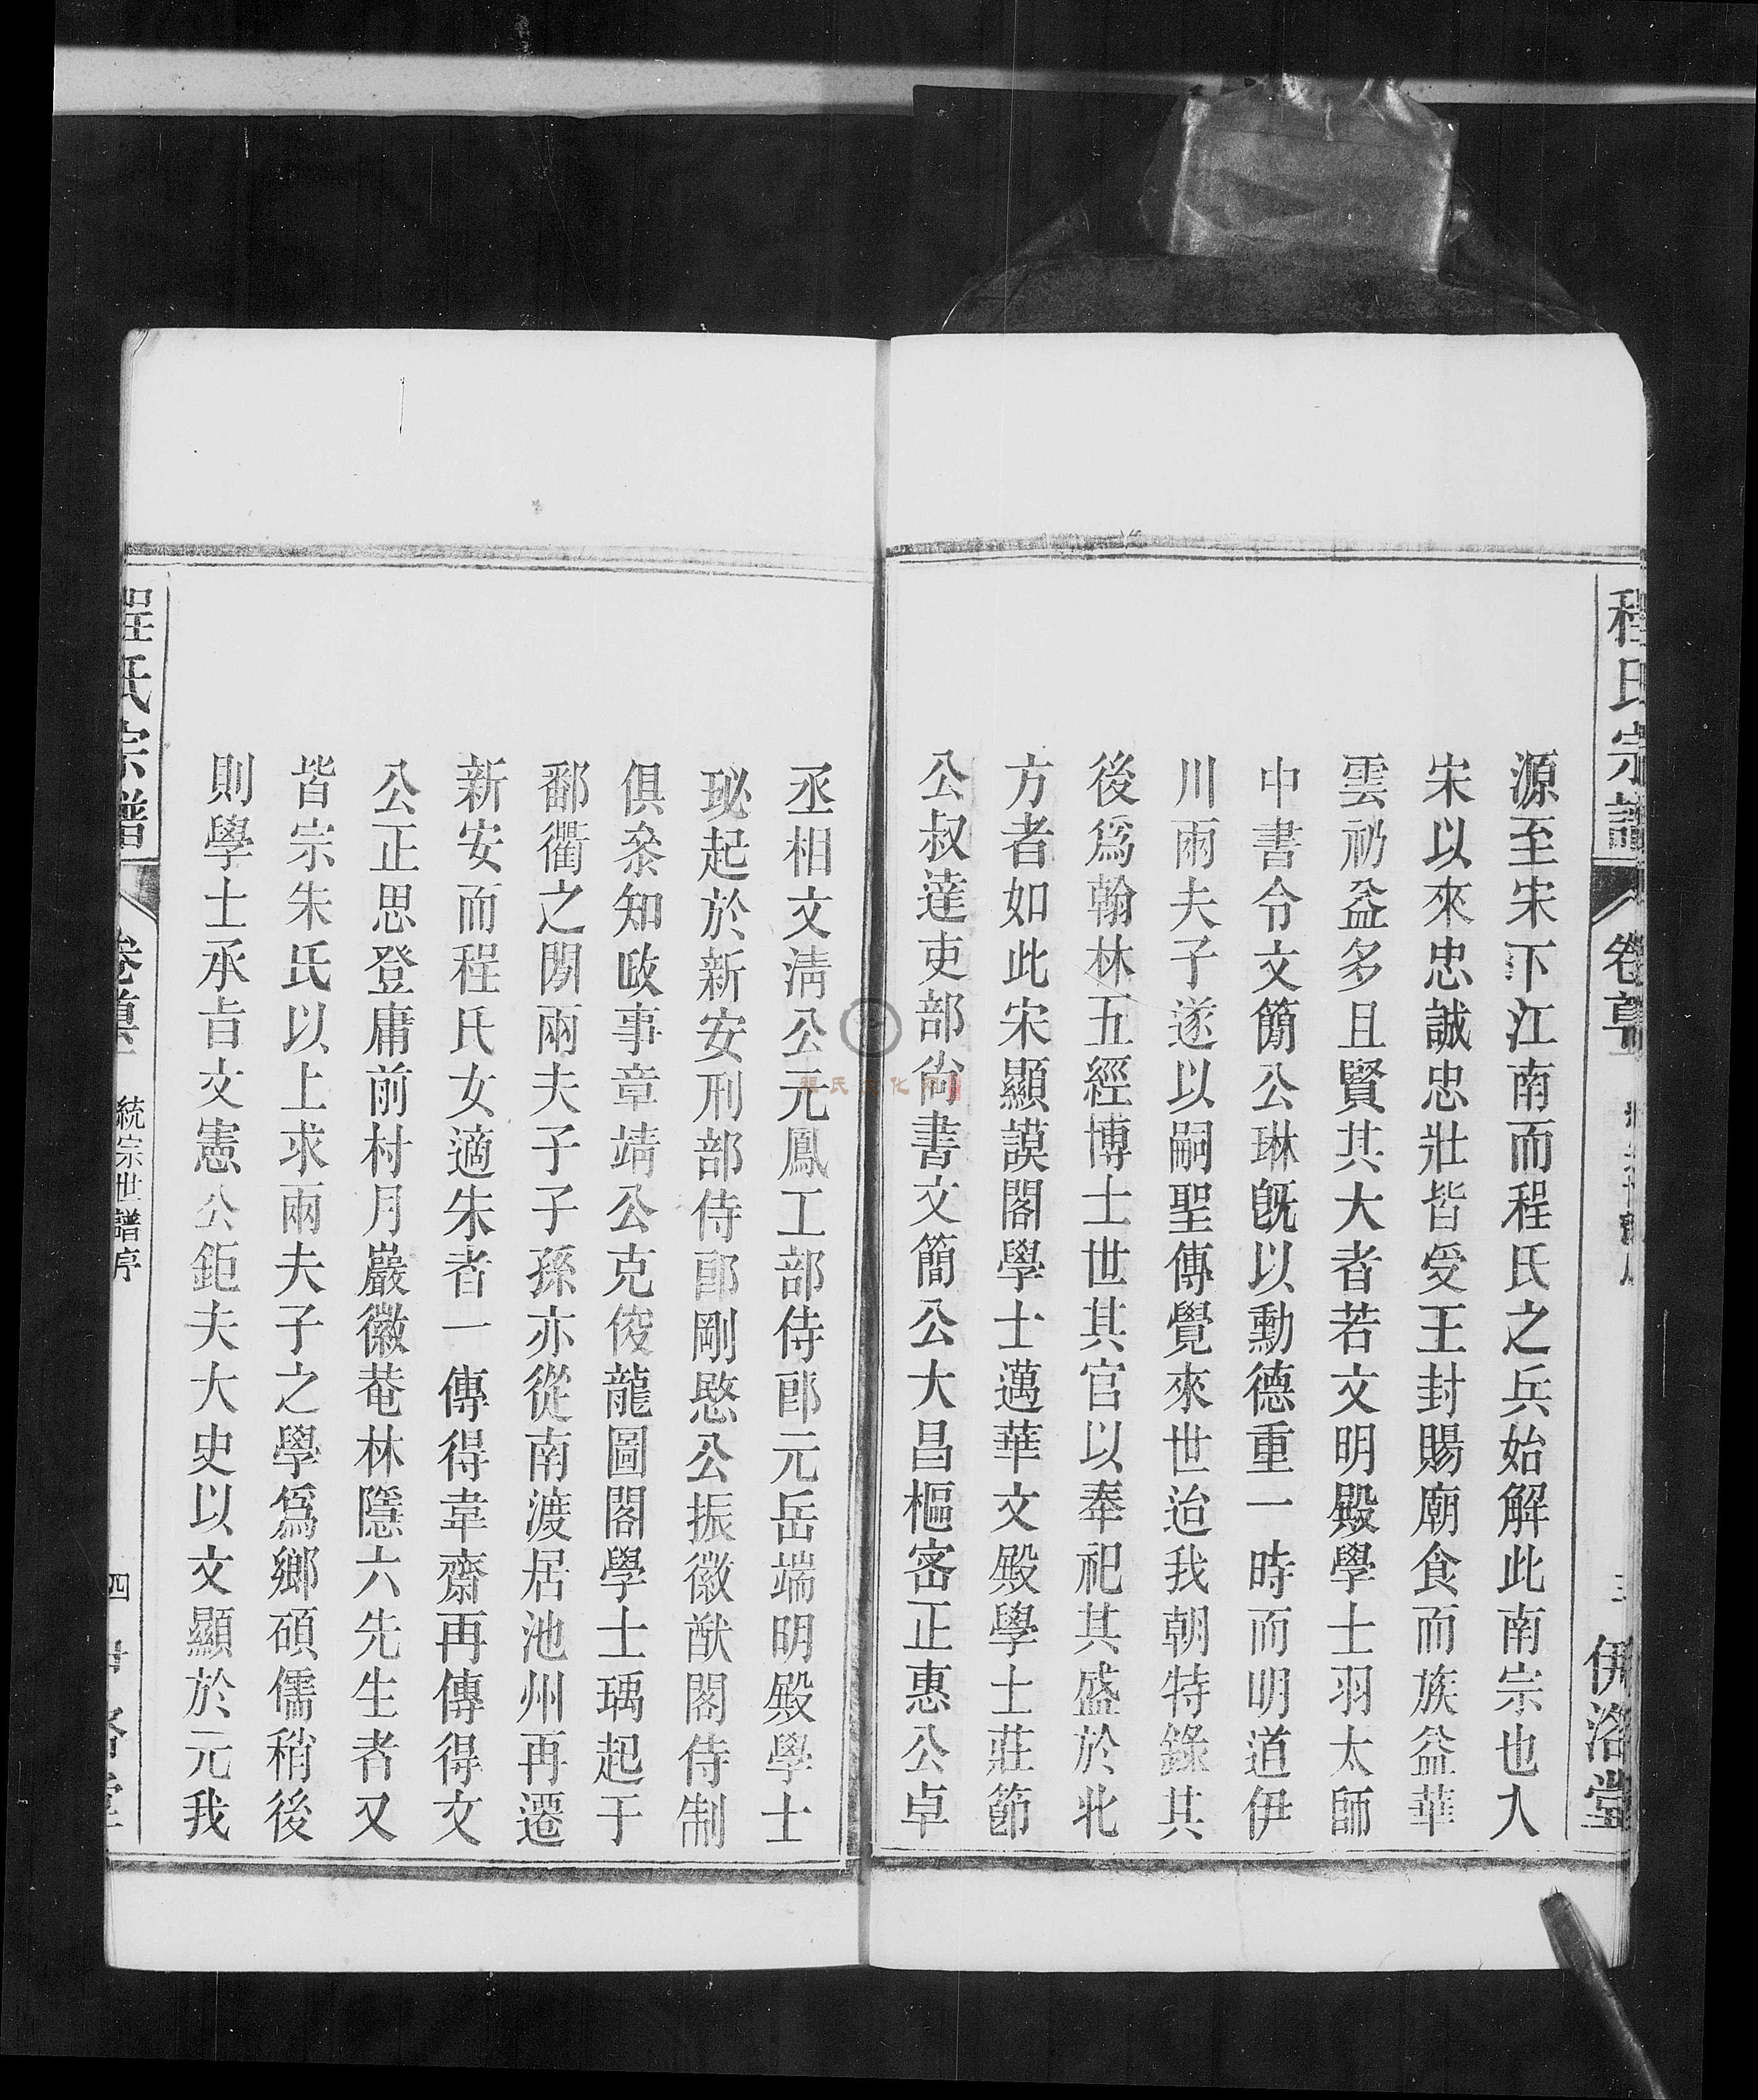 程氏宗譜
卷首
三
伊洛堂
源至宋下江南而程氏之兵始解此南宗也入
宋以來忠誠忠壯皆受王封賜廟食而族益華
雲礽益多且賢其大者若文明殿學士羽太師
中書令文簡公琳旣以勳德重一時而明道伊
川兩夫子遂以嗣聖傳覺來世迨我朝特錄其
後爲翰林五經博士世其官以奉祀其盛於北
方者如此宋顯謨閣學士邁華文殿學士莊節
公叔達吏部尙書文簡公大昌樞密正惠公卓
丞相文淸公元鳳工部侍郞元岳端明殿學士
珌起於新安刑部侍郞剛愍公振徽猷閣侍制
俱叅知政事章靖公克俊龍圖閣學士瑀起于
鄱衢之閒兩夫子子孫亦從南渡居池州再遷
新安而程氏女適朱者一傳得韋齋再傳得文
公正思登庸前村月巖徽菴林隱六先生者又
皆宗朱氏以上求兩夫子之學爲鄉碩儒稍後
則學士承旨文憲公鉅夫大史以文顯於元我
程氏宗譜
卷首
統宗世譜序
四